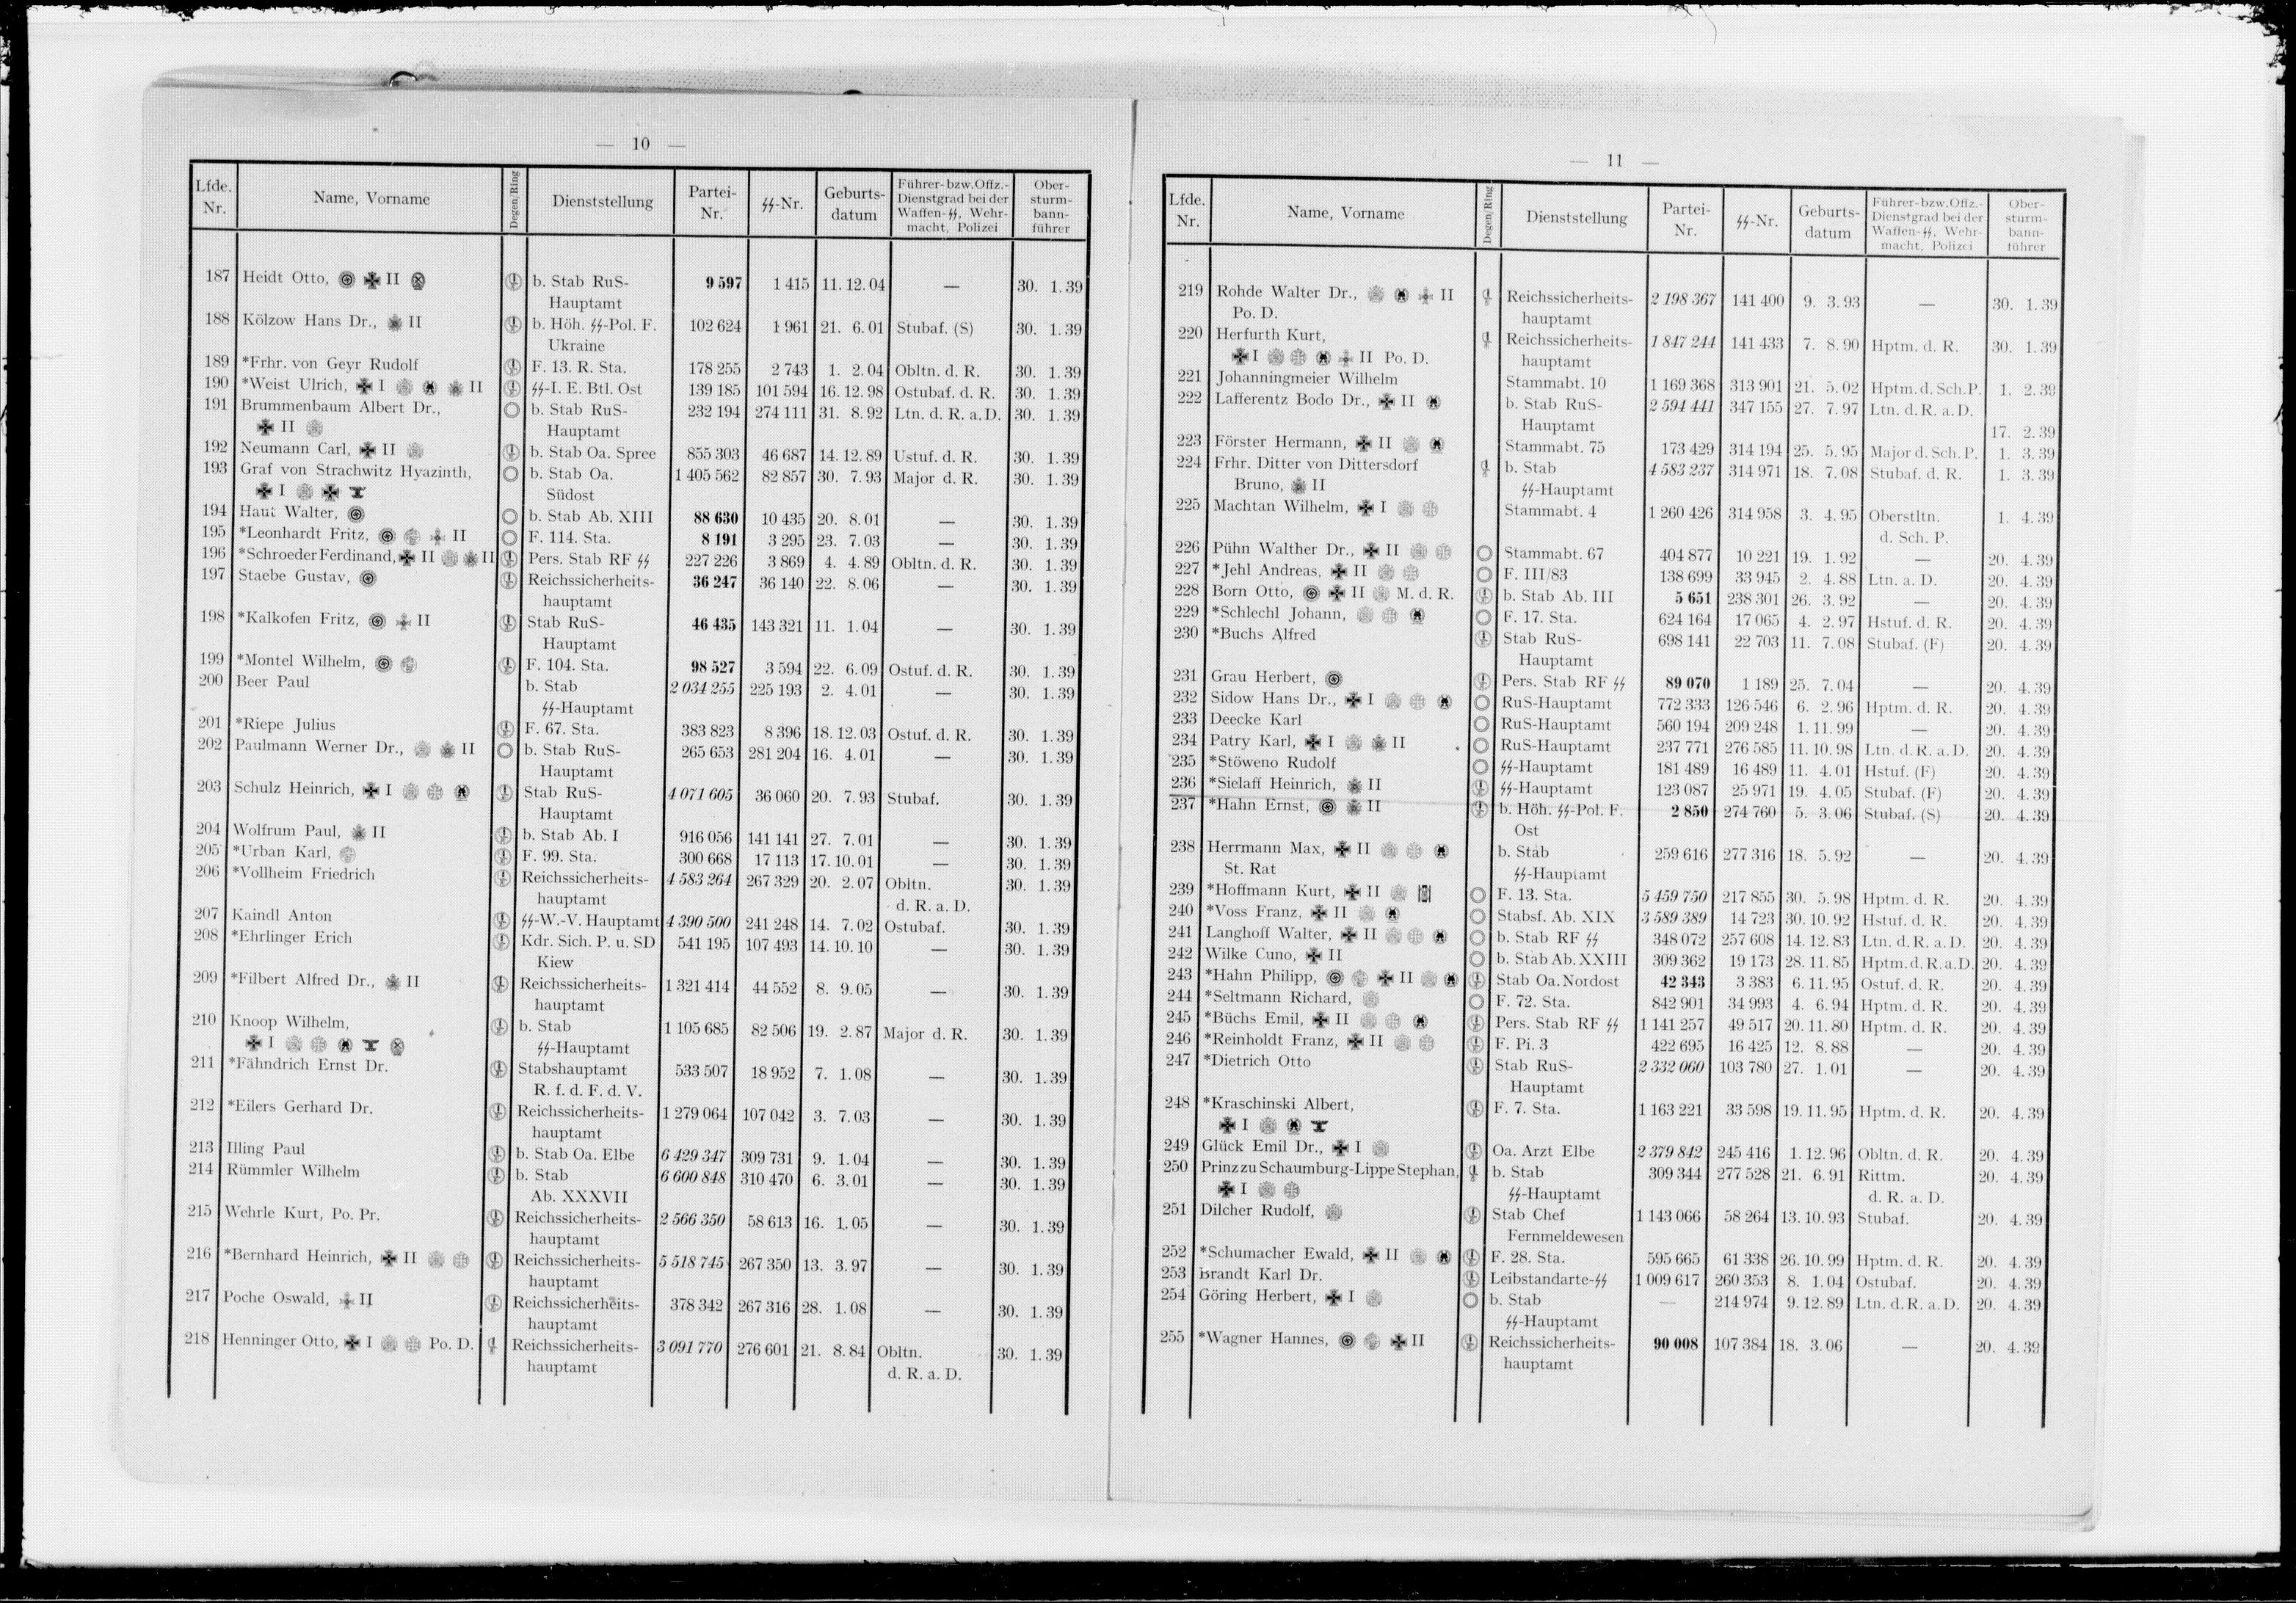 — 10 —
Lfde. Nr. Name, Vorname Degen/Ring Dienststellung Partei-Nr. ᛋᛋ-Nr. Geburts-datum Führer- bzw. Offz.-Dienstgrad bei der Waffen-ᛋᛋ, Wehr-macht, Polizei Ober-sturm-bann-führer
187 Heidt Otto, II b. Stab RuS- 9 597 1 415 11. 12. 04 — 30. 1. 39
Hauptamt
188 Kölzow Hans Dr., II b. Höh. ᛋᛋ-Pol. F. 102 624 1 961 21. 6. 01 Stubaf. (S) 30. 1. 39
Ukraine
189 *Frhr. von Geyr Rudolf F. 13. R. Sta. 178 255 2 743 1. 2. 04 Obltn. d. R. 30. 1. 39
190 *Weist Ulrich, I II ᛋᛋ-I. E. Btl. Ost 139 185 101 594 16. 12. 98 Ostubaf. d. R. 30. 1. 39
191 Brummenbaum Albert Dr., b. Stab RuS- 232 194 274 111 31. 8. 92 Ltn. d. R. a. D. 30. 1. 39
II Hauptamt
192 Neumann Carl, II b. Stab Oa. Spree 855 303 46 687 14. 12. 89 Ustuf. d. R. 30. 1. 39
193 Graf von Strachwitz Hyazinth, b. Stab Oa. 1 405 562 82 857 30. 7. 93 Major d. R. 30. 1. 39
I Südost
194 Haut Walter, b. Stab Ab. XIII 88 630 10 435 20. 8. 01 — 30. 1. 39
195 *Leonhardt Fritz, II F. 114. Sta. 8 191 3 295 23. 7. 03 — 30. 1. 39
196 *Schroeder Ferdinand, II II Pers. Stab RF ᛋᛋ 227 226 3 869 4. 4. 89 Obltn. d. R. 30. 1. 39
197 Staebe Gustav, Reichssicherheits- 36 247 36 140 22. 8. 06 — 30. 1. 39
hauptamt
198 *Kalkofen Fritz, II Stab RuS- 46 435 143 321 11. 1. 04 — 30. 1. 39
Hauptamt
199 *Montel Wilhelm, F. 104. Sta. 98 527 3 594 22. 6. 09 Ostuf. d. R. 30. 1. 39
200 Beer Paul b. Stab 2 034 255 225 193 2. 4. 01 — 30. 1. 39
ᛋᛋ-Hauptamt
201 *Riepe Julius F. 67. Sta. 383 823 8 396 18. 12. 03 Ostuf. d. R. 30. 1. 39
202 Paulmann Werner Dr., II b. Stab RuS- 265 653 281 204 16. 4. 01 — 30. 1. 39
Hauptamt
203 Schulz Heinrich, I Stab RuS- 4 071 605 36 060 20. 7. 93 Stubaf. 30. 1. 39
Hauptamt
204 Wolfrum Paul, II b. Stab Ab. I 916 056 141 141 27. 7. 01 — 30. 1. 39
205 *Urban Karl, F. 99. Sta. 300 668 17 113 17. 10. 01 — 30. 1. 39
206 *Vollheim Friedrich Reichssicherheits- 4 583 264 267 329 20. 2. 07 Obltn. 30. 1. 39
hauptamt d. R. a. D.
207 Kaindl Anton ᛋᛋ-W.-V. Hauptamt 4 390 500 241 248 14. 7. 02 Ostubaf. 30. 1. 39
208 *Ehrlinger Erich Kdr. Sich. P. u. SD 541 195 107 493 14. 10. 10 — 30. 1. 39
Kiew
209 *Filbert Alfred Dr., II Reichssicherheits- 1 321 414 44 552 8. 9. 05 — 30. 1. 39
hauptamt
210 Knoop Wilhelm, b. Stab 1 105 685 82 506 19. 2. 87 Major d. R. 30. 1. 39
I ᛋᛋ-Hauptamt
211 *Fähndrich Ernst Dr. Stabshauptamt 533 507 18 952 7. 1. 08 — 30. 1. 39
R. f. d. F. d. V.
212 *Eilers Gerhard Dr. Reichssicherheits- 1 279 064 107 042 3. 7. 03 — 30. 1. 39
hauptamt
213 Illing Paul b. Stab Oa. Elbe 6 429 347 309 731 9. 1. 04 — 30. 1. 39
214 Rümmler Wilhelm b. Stab 6 600 848 310 470 6. 3. 01 — 30. 1. 39
Ab. XXXVII
215 Wehrle Kurt, Po. Pr. Reichssicherheits- 2 566 350 58 613 16. 1. 05 — 30. 1. 39
hauptamt
216 *Bernhard Heinrich, II Reichssicherheits- 5 518 745 267 350 13. 3. 97 — 30. 1. 39
hauptamt
217 Poche Oswald, II Reichssicherheits- 378 342 267 316 28. 1. 08 — 30. 1. 39
hauptamt
218 Henninger Otto, I Po. D. Reichssicherheits- 3 091 770 276 601 21. 8. 84 Obltn. 30. 1. 39
hauptamt d. R. a. D.
— 11 —
Lfde. Nr. Name, Vorname Degen/Ring Dienststellung Partei-Nr. ᛋᛋ-Nr. Geburts-datum Führer- bzw. Offiz.-Dienstgrad bei der Waffen-ᛋᛋ, Wehr-macht, Polizei Ober-sturm-bann-führer
219 Rohde Walter Dr., II Reichssicherheits- 2 198 367 141 400 9. 3. 93 — 30. 1. 39
Po. D. hauptamt
220 Herfurth Kurt, Reichssicherheits- 1 847 244 141 433 7. 8. 90 Hptm. d. R. 30. 1. 39
I II Po. D. hauptamt
221 Johanningmeier Wilhelm Stammabt. 10 1 169 368 313 901 21. 5. 02 Hptm. d. Sch. P. 1. 2. 39
222 Lafferentz Bodo Dr., II b. Stab RuS- 2 594 441 347 155 27. 7. 97 Ltn. d. R. a. D.
Hauptamt 17. 2. 39
223 Förster Hermann, II Stammabt. 75 173 429 314 194 25. 5. 95 Major d. Sch. P. 1. 3. 39
224 Frhr. Ditter von Dittersdorf b. Stab 4 583 237 314 971 18. 7. 08 Stubaf. d. R. 1. 3. 39
Bruno, II ᛋᛋ-Hauptamt
225 Machtan Wilhelm, I Stammabt. 4 1 260 426 314 958 3. 4. 95 Oberstltn. 1. 4. 39
d. Sch. P.
226 Pühn Walther Dr., II Stammabt. 67 404 877 10 221 19. 1. 92 — 20. 4. 39
227 *Jehl Andreas, II F. III/83 138 699 33 945 2. 4. 88 Ltn. a. D. 20. 4. 39
228 Born Otto, II M. d. R. b. Stab Ab. III 5 651 238 301 26. 3. 92 — 20. 4. 39
229 *Schlechl Johann, F. 17. Sta. 624 164 17 065 4. 2. 97 Hstuf. d. R. 20. 4. 39
230 *Buchs Alfred Stab RuS- 698 141 22 703 11. 7. 08 Stubaf. (F) 20. 4. 39
Hauptamt
231 Grau Herbert, Pers. Stab RF ᛋᛋ 89 070 1 189 25. 7. 04 — 20. 4. 39
232 Sidow Hans Dr., I RuS-Hauptamt 772 333 126 546 6. 2. 96 Hptm. d. R. 20. 4. 39
233 Deecke Karl RuS-Hauptamt 560 194 209 248 1. 11. 99 — 20. 4. 39
234 Patry Karl, I II RuS-Hauptamt 237 771 276 585 11. 10. 98 Ltn. d. R. a. D. 20. 4. 39
235 *Stöweno Rudolf ᛋᛋ-Hauptamt 181 489 16 489 11. 4. 01 Hstuf. (F) 20. 4. 39
236 *Sielaff Heinrich, II ᛋᛋ-Hauptamt 123 087 25 971 19. 4. 05 Stubaf. (F) 20. 4. 39
237 *Hahn Ernst, II b. Höh. ᛋᛋ-Pol. F. 2 850 274 760 5. 3. 06 Stubaf. (S) 20. 4. 39
Ost
238 Herrmann Max, II b. Stab 259 616 277 316 18. 5. 92 — 20. 4. 39
St. Rat ᛋᛋ-Hauptamt
239 *Hoffmann Kurt, II F. 13. Sta. 5 459 750 217 855 30. 5. 98 Hptm. d. R. 20. 4. 39
240 *Voss Franz, II Stabsf. Ab. XIX 3 589 389 14 723 30. 10. 92 Hstuf. d. R. 20. 4. 39
241 Langhoff Walter, II b. Stab RF ᛋᛋ 348 072 257 608 14. 12. 83 Ltn. d. R. a. D. 20. 4. 39
242 Wilke Cuno, II b. Stab Ab. XXIII 309 362 19 173 28. 11. 85 Hptm. d. R. a. D. 20. 4. 39
243 *Hahn Philipp, II Stab Oa. Nordost 42 343 3 383 6. 11. 95 Ostuf. d. R. 20. 4. 39
244 *Seltmann Richard, F. 72. Sta. 842 901 34 993 4. 6. 94 Hptm. d. R. 20. 4. 39
245 *Büchs Emil, II Pers. Stab RF ᛋᛋ 1 141 257 49 517 20. 11. 80 Hptm. d. R. 20. 4. 39
246 *Reinholdt Franz, II F. Pi. 3 422 695 16 425 12. 8. 88 — 20. 4. 39
247 *Dietrich Otto Stab RuS- 2 332 060 103 780 27. 1. 01 — 20. 4. 39
Hauptamt
248 *Kraschinski Albert, F. 7. Sta. 1 163 221 33 598 19. 11. 95 Hptm. d. R. 20. 4. 39
I
249 Glück Emil Dr., I Oa. Arzt Elbe 2 379 842 245 416 1. 12. 96 Obltn. d. R. 20. 4. 39
250 Prinz zu Schaumburg-Lippe Stephan, b. Stab 309 344 277 528 21. 6. 91 Rittm. 20. 4. 39
I ᛋᛋ-Hauptamt d. R. a. D.
251 Dilcher Rudolf, Stab Chef 1 143 066 58 264 13. 10. 93 Stubaf. 20. 4. 39
Fernmeldewesen
252 *Schumacher Ewald, II F. 28. Sta. 595 665 61 338 26. 10. 99 Hptm. d. R. 20. 4. 39
253 Brandt Karl Dr. Leibstandarte-ᛋᛋ 1 009 617 260 353 8. 1. 04 Ostubaf. 20. 4. 39
254 Göring Herbert, I b. Stab — 214 974 9. 12. 89 Ltn. d. R. a. D. 20. 4. 39
ᛋᛋ-Hauptamt
255 *Wagner Hannes, II Reichssicherheits- 90 008 107 384 18. 3. 06 — 20. 4. 39
hauptamt